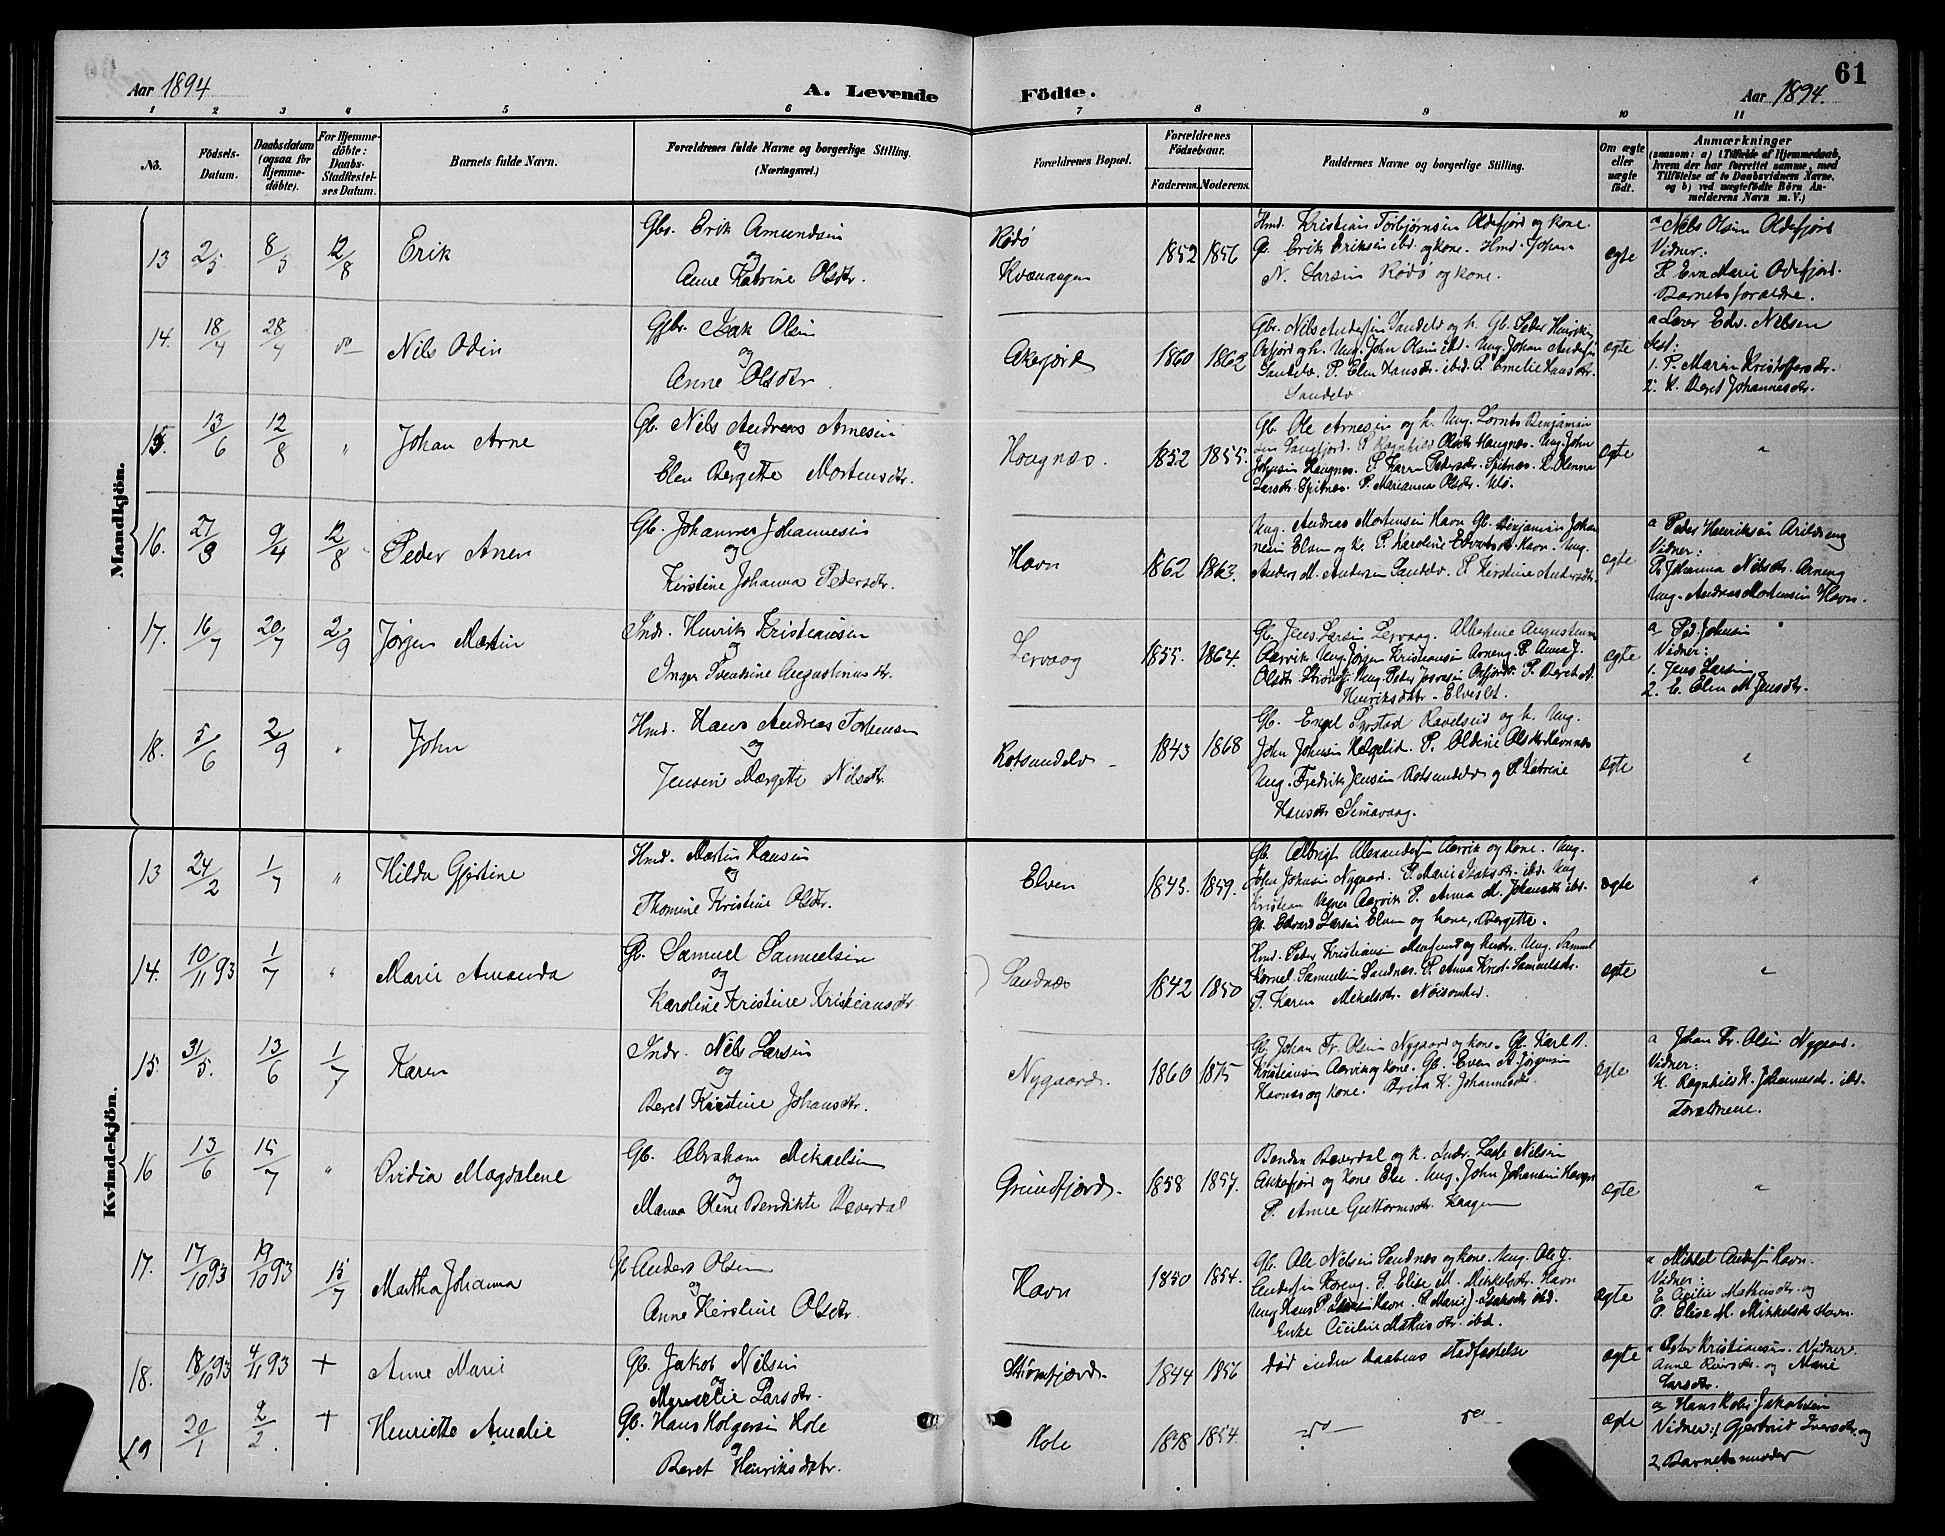 Aar 1894 A. Levende Födte. Aar 1894. 61
1 2 3 4 5 6 7 8 9 10 11
No.
Födsels-Datum.
Daabsdatum (ogsaa for Hjemme-döbte).
For Hjemme-döbte: Daabs-Stadfæstel-ses Datum.
Barnets fulde Navn.
Forældrenes fulde Navne og borgerlige Stilling. (Næringsvei.)
Forældrenes Bopæl.
Forældrenes Födselsaar.
Faderens. Moderens.
Faddernes Navne og borgerlige Stilling.
Om ægte eller uægte födt.
Anmærkninger
(saasom: a) i Tilfælde af Hjemmedaab,
hvem der har forrettet samme, med
Tilföielse af to Daabsvidners Navne.
og b) ved uægtefödte Börn An-
melderens Navn m. V.)
Mandkjön.
13 2/5 8/5 12/8 Erik
Gbr. Erik Amundsen
og
Anne Katrine Olsdtr.
Rödö
Kvænangen
1852 1856
Hmd. Kristian Torbjørnsen Oldefjord og kone.
G. Erik Eriksen ibd. og kone. Hmd. Johan
N. Larsen Rödö og kone.
ægte
a Nels Olsen Oldefjord
Vidner:
P. Ern Marie Oldefjord.
Barnets forældre.
14. 18/4 28/4 do Nils Odin
Gbr. Isak Olsen
og
Anne Olsdtr.
Akefjord
1860 1862
Gbr. Nils Andersen Sandelv og h. Gb. Peder Henriksen
Oxfjord og h. Ung. John Olsen ibd. Ung. Johan Andersen
Sandelv. P. Elen Hansdtr. ibd. P. Emelie Hansdtr.
Sandelv
ægte
a Lærer Edv. Nelsen
1. P. Maren Kristoffersdtr.
2. K. Beret Johannesdtr.
15. 13/6 12/8 " Johan Arne
Gb. Nils Andreas Arnesen
og
Elen Bergette Mortensdtr.
Hougnæs.
1852 1855.
Gb. Ole Arnesen og h. Ung. Lornts Benjamin
sen Langfjord. P. Ragnhild Olsdtr. Haugnæs. Ung. John
Johnsen Haugnæs. P. Karen Pedersdtr. Spitnæs. P. Olenna
Larsdtr. Spitnæs. P. Marianna Olsdtr. Ulö.
ægte "
16. 27/3 9/4 12/8 Peder Anen
Gb. Johannes Johannesen
og
Kirstine Johanna Pedersdtr.
Havn
1862 1863.
Ung. Andreas Mortensen Havn. Gb. Benjamin Johan
nesen Elven og K. P. Karoline Edvardsdtr. Havn. Ung.
Anders M. Andersen Sandelv. P. Kirstine Andersdtr.
ægte
a Peder Henriksen Arildseng
Vidner:
P. Johanna Nilsdtr. Arneng
Ung. Andreas Mortensen Havn.
17. 16/7 20/7 2/9 Jørgen Martin
Indr. Henrik Kristiansen
og
Inger Augustinusdtr.
Lervaag
1855. 1864.
Gb. Jens Larsen Lervaag. Albertine Augustinus
Aarvik. Ung. Jørgen Kristiansen Arneng. P. Anna J.
Henriksdtr. Elveslet.
ægte
a Ped. Johnsen
Vidner:
1. Jens Larsen
2. E. Elen M. Jensdtr.
18. 5/6 2/9 " John
Hmd. Hans Andreas Torbensen
og
Jensen Margette Nilsdtr.
Rotsundelv
1843 1868
Gb. Engel Pyrstad Ravelseid og h. Ung.
John Johnsen Hegelid. P. Oldine Olsdtr. Havnnæs
Ung. Fredrik Jensen Rotsundelv og P. Katrine
Hansdtr.
ægte "
Kvindekjön.
13 24/2 1/7 " Hilda Gjertine
Hmd. Martin Hansen
og
Thomine Kristine Olsdtr.
Elven
1845. 1859.
Gb. Albrigt Alexandersen Aarvik og kone. Ung.
John Johnsen Nygaard. P. Marie Isaksdtr. ibd. Ung
Kristian Aarvik P. Anna M. Johansdtr. ibd.
Gb. Edvard Larsen Elven og kone, Bergette.
ægte "
14. 10/11 93 1/7 " Marie Amanda
Gb. Samuel Samuelsen
og
Karoline Kristine Kristiansdtr
Sandnæs
1842 1850
Hmd. Peder Kristiansen og Hustr. Ung. Samuel
Kornel Samuelsen Sandnæs. P. Anna Krist. Samuelsdtr.
P. Karen Mikelsdtr.
ægte "
15. 31/5. 13/6 1/7 Karen
Indr. Nils Larsen
og
Beret Kirstine Johansdtr.
Nygaard.
1860 1875
Gb. Johan Fr. Olsen Nygaard og kone. Gb. Karl B.
Kristiansen Aarvik og kone. Gb. Even A. Jørgensen
Havnæs og kone. Brita K. Johannesdtr.
ægte
a Johan Fr. Olsen Nygaard.
Vidner:
K. Ragnhild K. Johannesdtr. ibd.
Forældrene.
16 13/6 15/7 " Ovidia Magdalene
Gb. Abraham Mikaelsen
og
Manna Olene Bendikte Bæverdal
Grundfjord.
1858 1857.
Benden Bæverdal og K. Indr. Lasse Nilsen
Akkefjord og kone Else. Ung. John Johansen
P. Anne Guttormsdtr. Kaagen
ægte "
17. 17/10 93 19/10 93 15/7 Martha Johanna
Gb Anders Olsen
og
Anne Kerstine Olsdtr.
Havn
1850 1854.
Gb. Ole Nilsen Sandnæs og kone. Ung. Ole J.
Andersen P. Elise M. Mikkelsdtr. Havn
Ung Hans P. Havn. K. Marie J. Isaksdtr. ibd.
Enke Cicilie Mathisdtr. ibd.
ægte
a Mikkel Andersen Havn.
Vidner:
E. Cicilie Mathisdtr. og
P. Elise M. Mikkelsdtr. Havn.
18. 18/10 93 4/11 93 + Anne Marie
Gb. Jakob Nilsen
og
Marselie Larsdtr.
Strömfjord.
1844 1856
död inden daabens stadfæstelse
ægte
a Peder Kristiansen. Vidner.
Anne Larsdtr. og Marie
Larsdtr.
19 20/1 2/2. + Henriette Amalie
Gb. Hans Holgersen Hole
og
Beret Henriksdatr.
Hole
1848 1854.
do do
ægte
a Hans Jakobsen
Vidner: 1 Gjertrud Iversdtr. og
2. Barnets moder